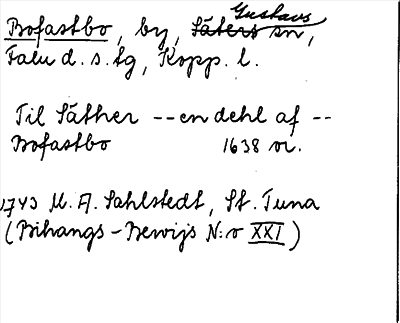 Bofastbo, by, Säters Gustavs sn,
Falu d. s. lg, Kopp. l.
Til Säther -- en dehl af --
Bofastbo 1638 or.
1743 M. A. Sahlstedt, St. Tuna
(Bihangs-Bewijs N:o XXI)